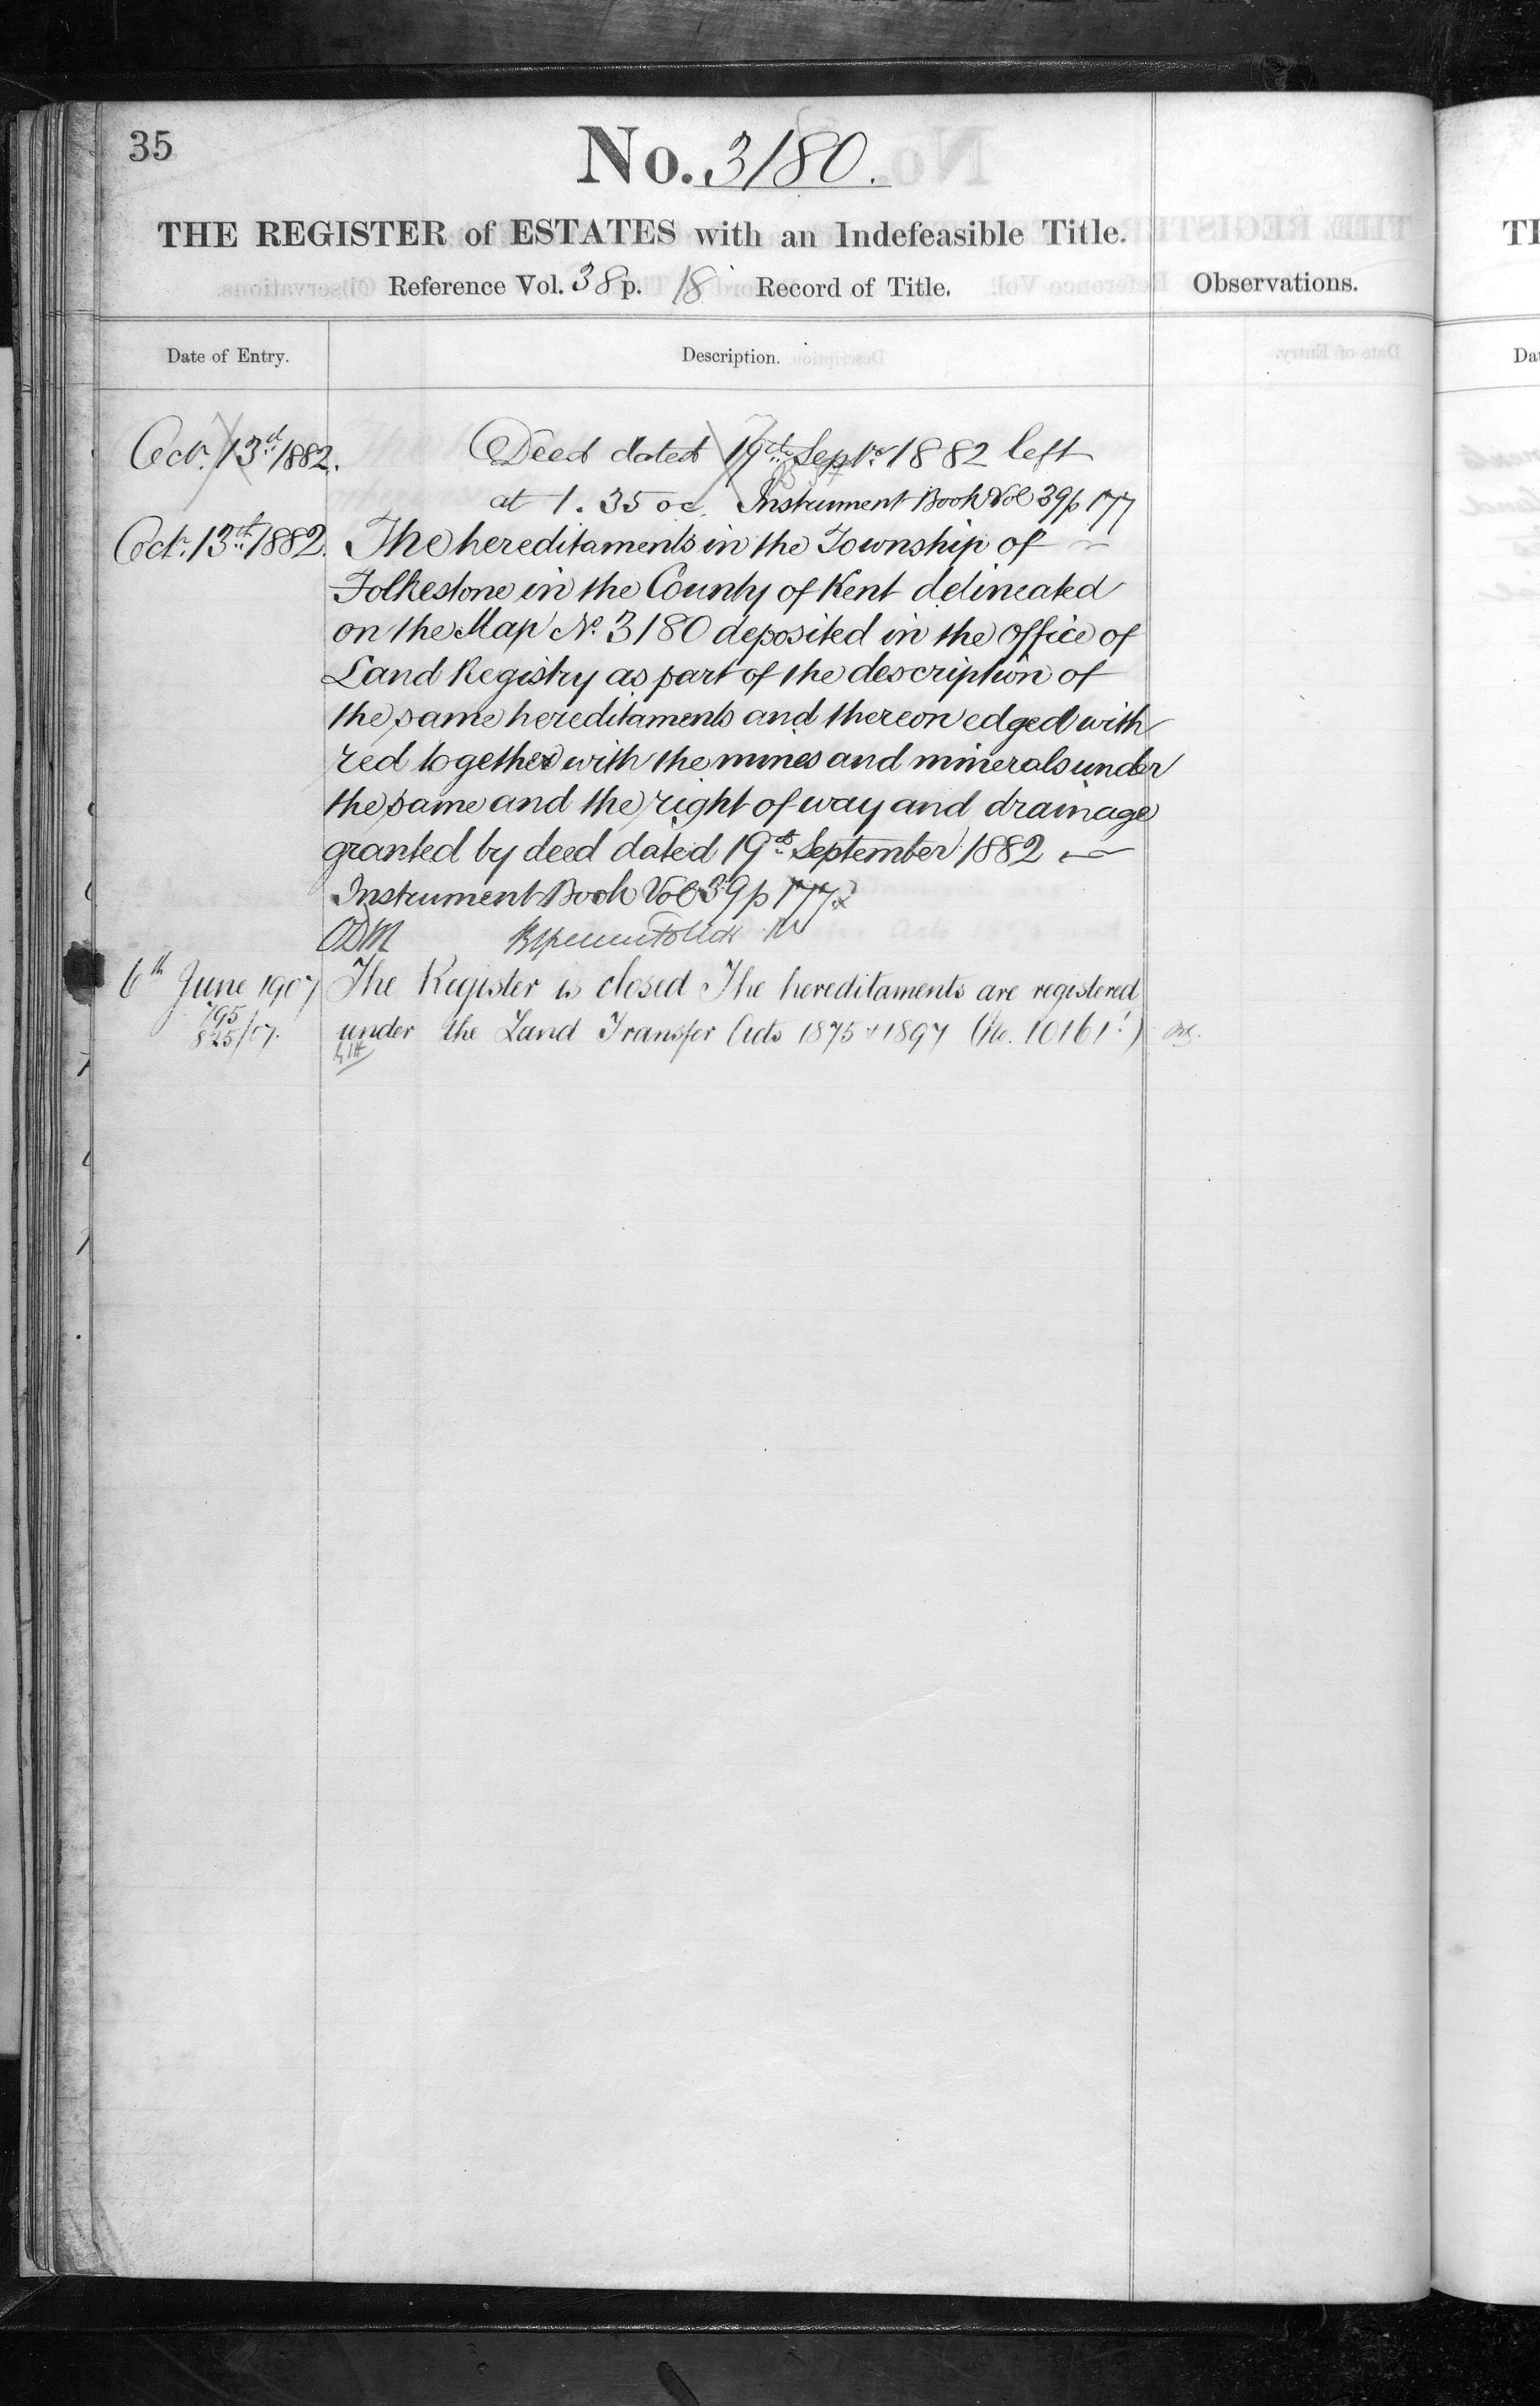 35
No. 3180.
THE REGISTER of ESTATES with an Indefeasible Title.
Reference Vol. 38 p. 18 Record of Title.
Observations.
Date of Entry.
Description.
Oct. 13th 1882.
Deed dated 19th Septr 1882 left
at 1.35 oc. Instrument Book Vol 39 p 177
Oct. 13th 1882.
The hereditaments in the Township of
Folkestone in the County of Kent delineated
on the Map No. 3180 deposited in the office of
Land Registry as part of the description of
the same hereditaments and thereon edged with
red together with the mines and minerals under
the same and the right of way and drainage
granted by deed dated 19th September 1882
Instrument Book Vol 39 p 177
ODM
6th June 1907
795
825/07.
The Register is closed The hereditaments are registered
under the Land Transfer Acts 1875 & 1897 (No. 10161.)